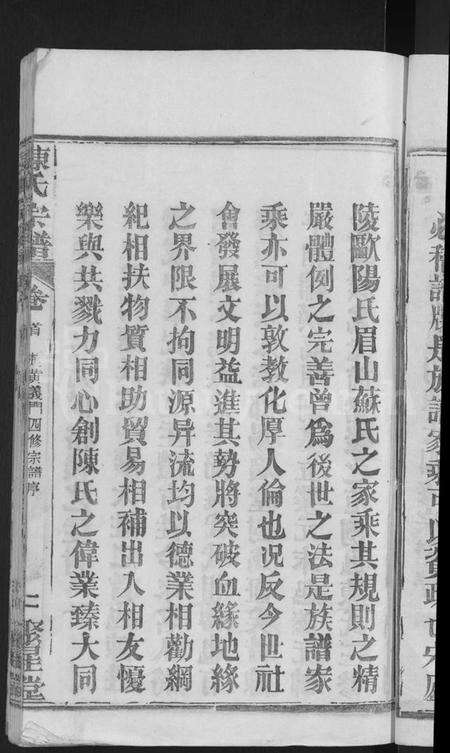 陵歐陽氏眉山蘇氏之家乘其規則之精
嚴體例之完善曾為後世之法是族譜家
乘亦可以敦教化厚人倫也况反今世社
會發展文明益進其勢將突破血緣地緣
之界限不拘同源昇流均以德業相勸綱
紀相扶物質相助貿易相補出入相友憂
樂與共戮力同心創陳氏之偉業臻大同
陳氏宗譜 卷首 黄義門四修宗譜序 二 聚星堂